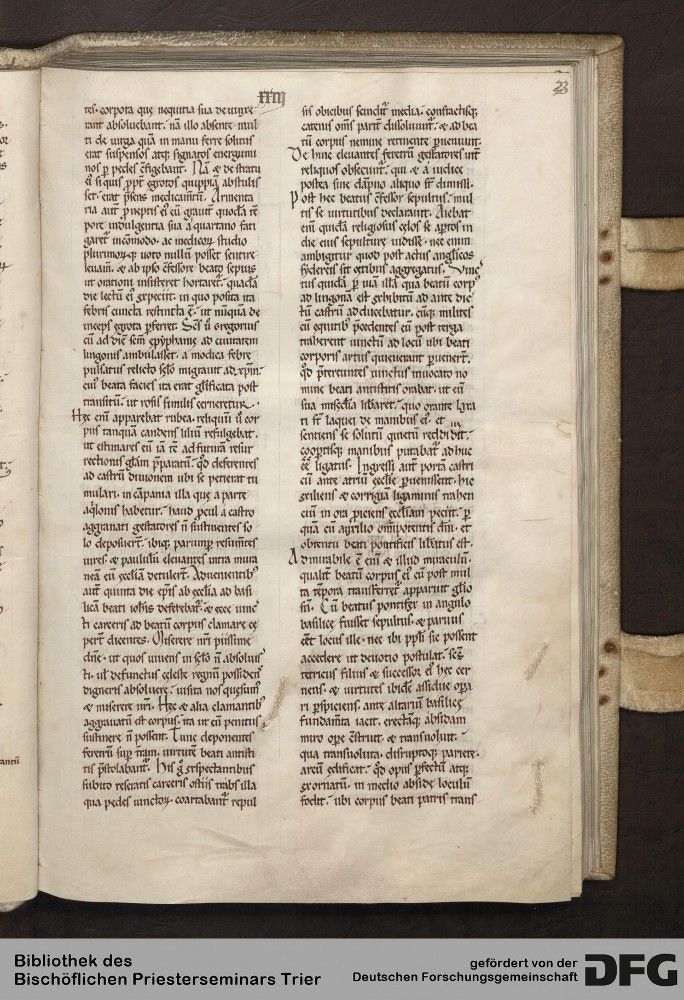 xxiij
23
tes. corpora que nequitia sua devinxe
rant absolvebant. nā illo absente mul
ti de virga quā in manu ferre solitus
erat suspensos atq; signatos energumi
nos p pedes ɔfigebant. Nā & de statu
ei si quis ꝓpt egrotos quippiā abstulis
set. erat p̄sens medicam̄tū. Armenta
ria aut ꝓneptis ei cū gravit quodā tē
pore indulgentia sua a quartano fati
garet incōmodo. ac medicoꝝ studio
plurimoꝝq; voto nullū posset sentire
levam̄. & ab ipso ɔfessore beato sepius
ut orationi insisteret hortaret. quadā
die lectū ei expeciit. in quo posita ita
febris cuncta restincta ē. ut nūquā de
inceps egrota pferret. Scs ū gregorius
cū ad diē scm epyphanie ad civitatem
lingonis ambulasset. a modica febre
pulsatus relicto sclo migravit ad xpm.
cui beata facies ita erat glificata post
transitū. ut rosis similis cerneretur.
Hec enī apparebat rubea. reliquū ū cor
pus tanquā candens liliū refulgebat.
ut estimares eū iā tē ad futurā resur
rectionis glam p̄paratū. qd deferentes
ad castrū divionem ubi se petierat tu
mulari. in cāpania illa que a parte
aqlonis habetur. haud procul a castro
aggravati gestatores n̄ sustinentes so
lo deposuert. ibiq; parump resum̄tes
vires. & paululū elevantes intra mura
neā eū ecclīam detulert. Advenientib
aut quinta die epis ab ecclia ad basi
licā beati iohis deferebat. & ecce vinc
ti carceris ad beatū corpus clamare ce
pert dicentes. Miserere nri piissime
dn̄e. ut quos vivens in sclo n̄ absolvis
ti. ul defunctus celeste regnū possidens
digneris absolvere. visita nos quesum
& miserere nri. Hec & alia clamantib
aggravatū est corpus. ita ut eū penitus
sustinere n̄ possent. Tunc deponentes
feretrū sup tram. virtutē beati antisti
tis p̄stolabant. His g exspectantibus
subito reseratis carceris ostiis trabs illa
qua pedes vinctoꝝ. coartabant repul
sis obicibus scindit media. confractisq;
catenis om̄s parit dissolvunt. & ad bea
tū corpus nemine retinente pvenunt.
De hinc elevantes feretrū gestatores int
reliquos obsecunt. qui & a iudice
postea sine dāpno aliquo st dimissi.
Post hec beatus ɔfessor sepultus. mul
tis se virtutibus declaravit. Aiebat
enī quidā religiosus celos se aptos in
die eius sepulture vidisse. nec enim
ambigitur quod post actus anglicos
sydereis sit cetibus aggregatus. Vinc
tus quidā p viā illā qua beatū corp
ad lingonā est exhibitū ad ante dic
tū castrū adducebatur. cūq; milites
cū equitib p̄cedentes eū post terga
traherent vinctū ad locū ubi beati
corporis artus quieverant pvenert.
qd p̄tereuntes vinctus invocato no
mine beati antistitis orabat. ut eū
sua misedia libaret. quo orante laxa
ti st laquei de manibus ei. et
sentiens se solutū quietū reddidit.
coopertisq; manibus putabat adhuc
ee ligatus. Ingressi aut portā castri
cū ante atriū ecclie pvenissent. hic
exiliens & corrigiā ligaminis trahen
eiū in ora piciens ecclīam petiit. p
quā cū auxilio om̄potentis dn̄i. et
obtentu beati pontificis libatus est.
Admirabile ē enī & illud miraculū.
qualit beatū corpus ei cū post mul
ta tēpora transferret apparuit glio
sū. Cū beatus pontifex in angulo
basilice fuisset sepultus. & parvus
eet locus ille. nec ibi ppli sic possent
accedere ut devotio postulat. scs
tetricus filius & successor ei hec cer
nens. & virtutes ibidē assidue opa
ri pspiciens. ante altariū basilice
fundam̄ta iacit. erectāq; absidam
miro ope ɔstruit. & transvoluit.
qua transvoluta. disruptoq; pariete.
arcū edificat. qd opus pfectū atq;
exornatū. in medio abside loculū
fodit. ubi corpus beati patris trans
Bibliothek des
Bischöflichen Priesterseminars Trier
gefördert von der
Deutschen Forschungsgemeinschaft
DFG